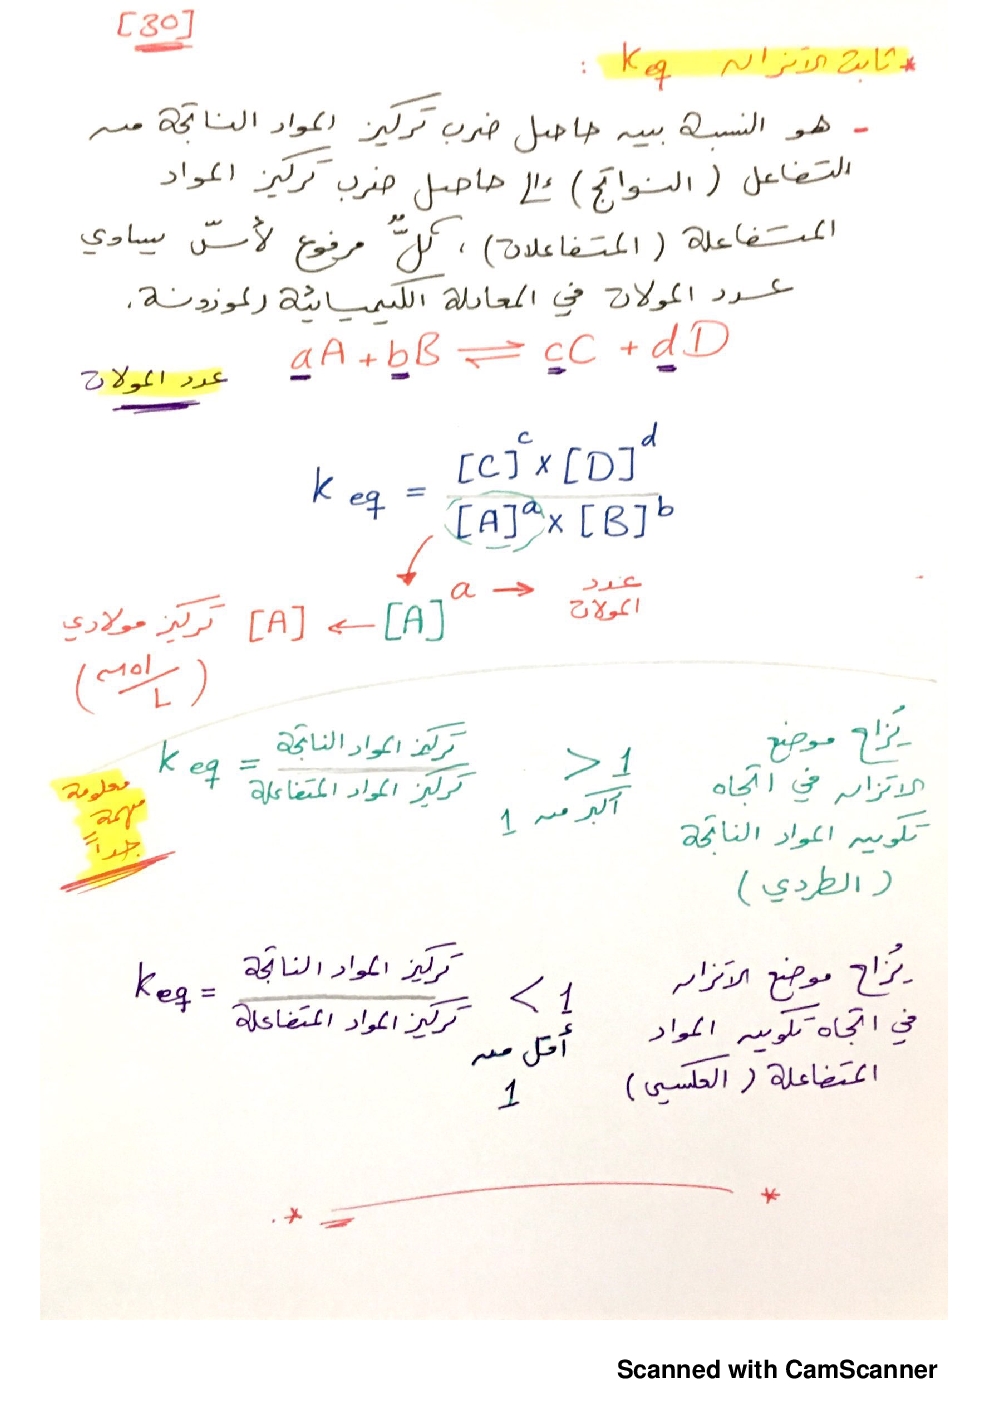 [30]
* ثابت الاتزان Keq :
- هو النسبة بين حاصل ضرب تركيز المواد الناتجة من
التفاعل (النواتج) إلى حاصل ضرب تركيز المواد
المتفاعلة (المتفاعلات)، كلٌّ مرفوع لأسّ يساوي
عدد المولات في المعادلة الكيميائية الموزونة.
aA + bB ⇌ cC + dD
عدد المولات
Keq = [C]^c x [D]^d
[A]^a x [B]^b
[A]^a → عدد المولات
← [A] تركيز مولاري
(mol/L)
معلومة
مهمة
جداً
Keq = تركيز المواد الناتجة / تركيز المواد المتفاعلة > 1
أكبر من 1
يُزاح موضع
الاتزان في اتجاه
تكوين المواد الناتجة
(الطردي)
Keq = تركيز المواد الناتجة / تركيز المواد المتفاعلة < 1
أقل من
1
يُزاح موضع الاتزان
في اتجاه تكوين المواد
المتفاعلة (العكسي)
Scanned with CamScanner